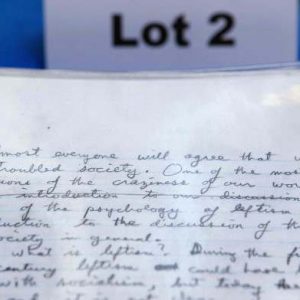 Lot 2
most everyone will agree that w
troubled society. One of the mos
ions of the craziness of our wor
introduction to our discussion
of the psychology of leftism
duction to the discussion of th
ociety in general.
what is leftism? During the fi
century leftism could have
with socialism, but today